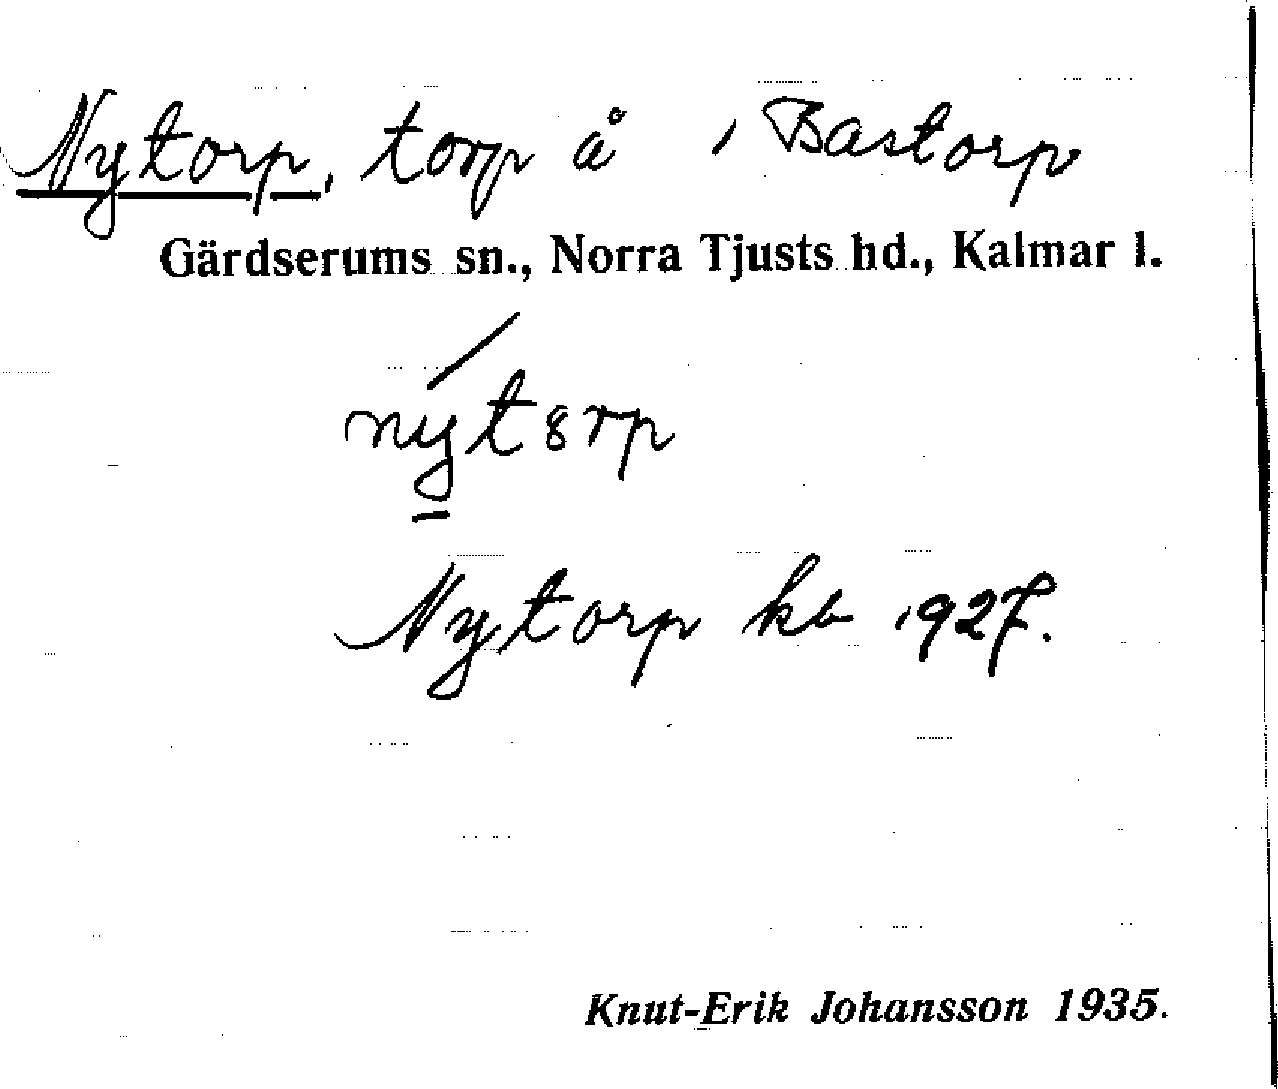 Nytorp, torp å 1 Bastorp
Gärdserums sn., Norra Tjusts hd., Kalmar l.
nýt8rp
Nytorp kb 1927.
Knut-Erik Johansson 1935.